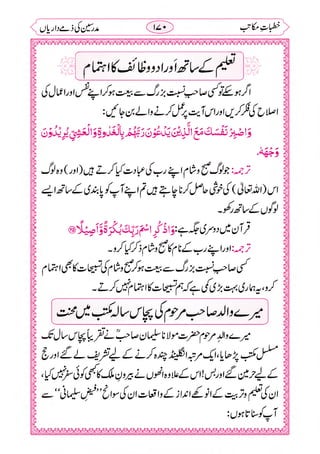 خطباتِ مکاتب
۱۷۰
مدرسین کی ذمے داریاں
تعلیم کے ساتھ اَوراد و وظائف کا اہتمام
اگر ہو سکے تو کسی صاحبِ نسبت بزرگ سے بیعت ہو کر اپنے نفس اور اعمال کی
اصلاح کی فکر کریں اور اس آیت پر عمل کرنے والے بن جائیں:
وَاصْبِرْ نَفْسَكَ مَعَ الَّذِيْنَ يَدْعُوْنَ رَبَّهُمْ بِالْغَدٰوةِ وَالْعَشِيِّ يُرِيْدُوْنَ
وَجْهَهٗ.
ترجمہ: جو لوگ صبح و شام اپنے رب کی عبادت کیا کرتے ہیں (اور) وہ لوگ
اس (اللہ تعالیٰ) کی خوشی حاصل کرنا چاہتے ہیں تم اپنے آپ کو پابندی کے ساتھ ایسے
لوگوں کے ساتھ رکھو۔
قرآن میں دوسری جگہ ہے: وَاذْكُرِ اسْمَ رَبِّكَ بُكْرَةً وَّاَصِيْلًا ﴿۲۵﴾
ترجمہ: اور اپنے رب کے نام کا صبح و شام ذکر کیا کرو۔
کسی صاحبِ نسبت بزرگ سے بیعت ہو کر صبح و شام کی تسبیحات کا بھی اہتمام
کرو، یہ ہماری بہت بڑی کمی ہے کہ ہم تسبیحات کا اہتمام نہیں کرتے۔
میرے والد صاحب مرحوم کی پچاس سالہ مکتب میں محنت
میرے والدِ مرحوم حضرت مولانا سلیمان صاحبؒ نے تقریباً پچاس سال تک
مسلسل مکتب پڑھایا، ایک مرتبہ انگلینڈ چندہ کرنے کے لیے تشریف لے گئے اور حج
کے لیے حرمین گئے اور بس! اس کے علاوہ انھوں نے بیرونِ ملک کا بھی کوئی سفر نہیں کیا،
ان کی تعلیم و تربیت کے انوکھے انداز کے واقعات ان کی سوانح ”فیضِ سلیمانی“ سے
آپ کو سناتا ہوں: